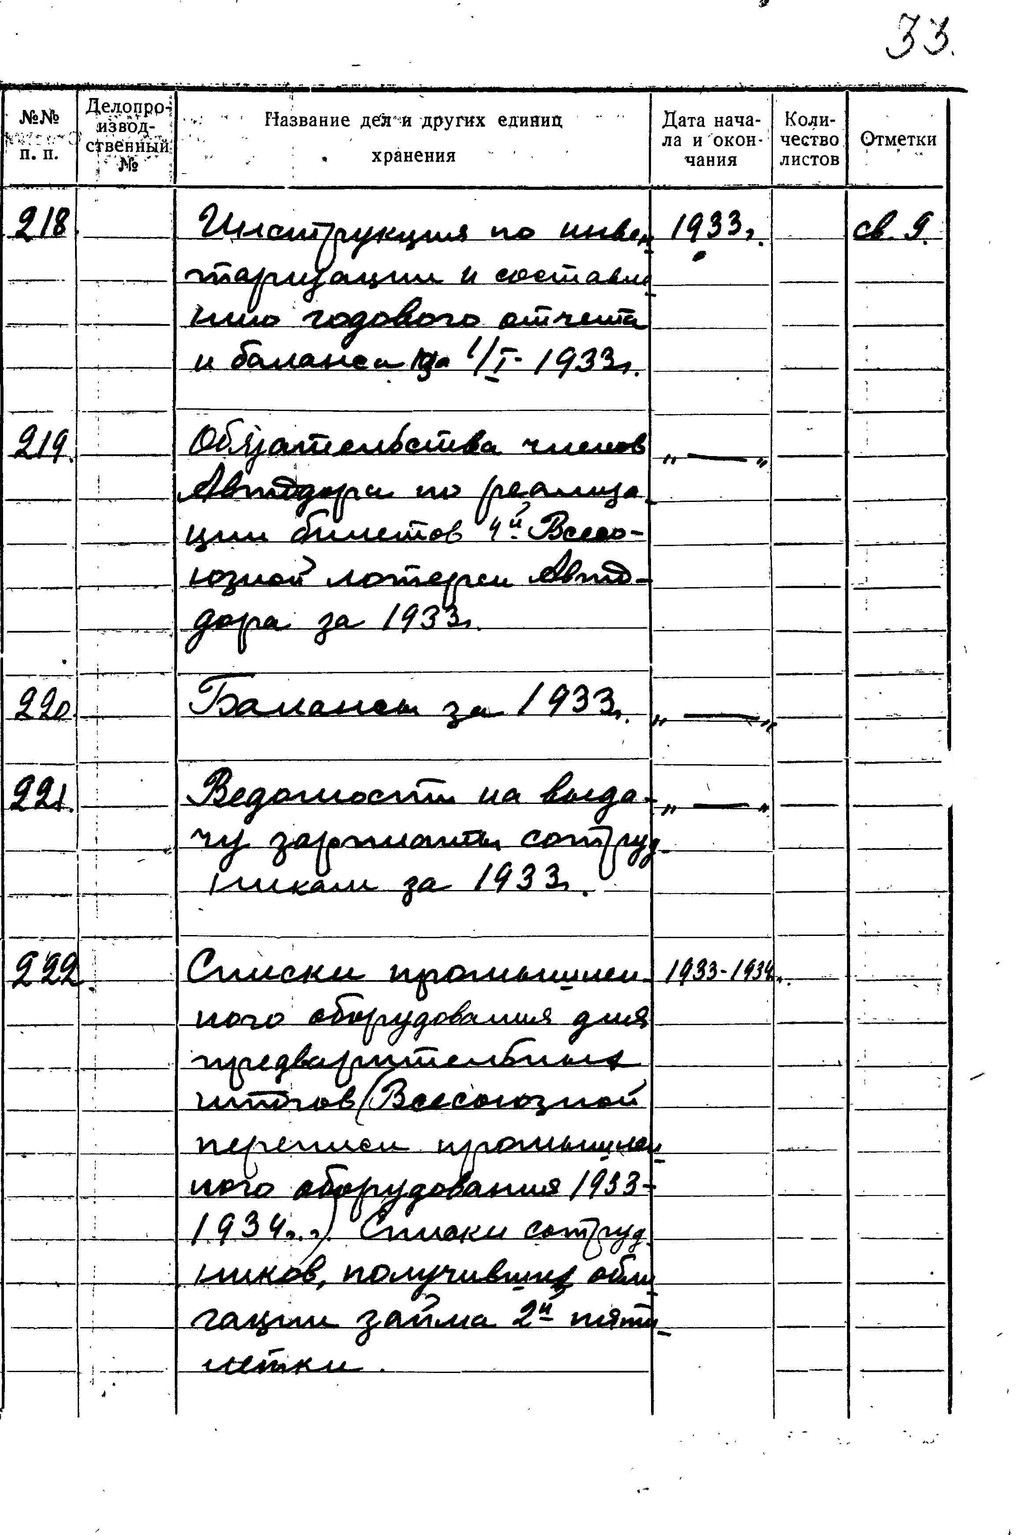 33.
№№ п. п.
Делопро-
извод-
ственный
№
Название дел и других единиц
хранения
Дата нача-
ла и окон-
чания
Коли-
чество
листов
Отметки
218 Инструкция по инвен 1933г. св. 9.
таризации и составле
нию годового отчета
и баланса на 1/I - 1933г.
219. Обязательства членов „ — „
Автодора по реализа-
ции билетов 4й Всесо-
юзной лотереи Авто-
дора за 1933г.
220. Балансы за 1933г. „ — „
221. Ведомости на выда- „ — „
чу зарплаты сотруд
никам за 1933г.
222. Списки промышлен- 1933-1934г.
ного оборудования для
предварительных
итогов (Всесоюзной
переписи промышлен
ного оборудования 1933-
1934г.г.) Списки сотруд
ников, получивших обли
гации займа 2й пяти
летки.